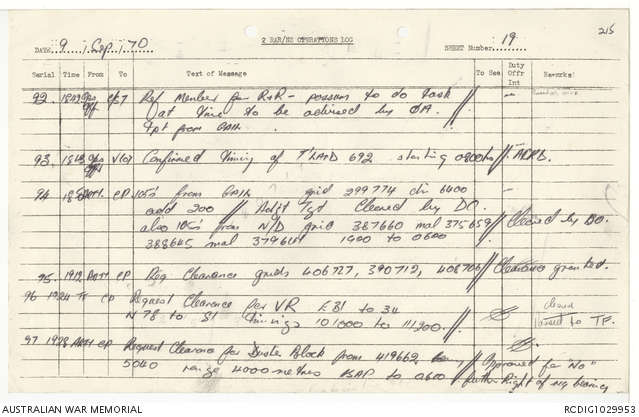 215
2 RAR/NZ OPERATIONS LOG
DATE 9 / Sep / 70
SHEET Number 19
Serial Time From To Text of Message To See Duty Offr Int Remarks
92. 1843 Ops Offr Ref Member for R&R - possum to do task
at time to be advised by
tpt from
93. Ops Offr Confirmed timing of 692 starting 0800hrs // ARRD.
94 Arty. CP 105's from grid 299774 dir 6400
add 200 // Adjt Tgt Cleared by DO.
also 105's from N/D grid 387660 mal 375659 // Cleared by DO.
388645 mal 1900 to 0600
95. 1912 Arty CP Req Clearance grids 406727, 390712, 408706 // Clearance granted.
96 1924 TF CP Request Clearance for VR E 31 to 34
N 78 to 81 timings 101000 to 111200. //
Passed to TF.
97 1928 Arty CP Request Clearance for Duster Block from 419662,
5040 range 4000 metres to 0600 // Approved for "No"
further Right of bearing
AUSTRALIAN WAR MEMORIAL
RCDIG1029953